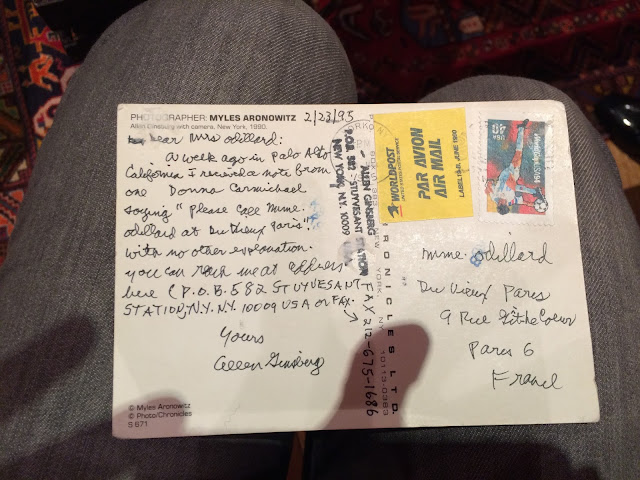 PHOTOGRAPHER: MYLES ARONOWITZ
Allen Ginsberg with camera, New York, 1990.
2/23/95
Dear Mrs Odillard:
A week ago in Palo Alto
California I received a note from
one Donna Carmichael
saying "please call Mme.
Odillard at Du Vieux Paris".
with no other explanation.
You can reach me at address
here (P.O.B. 582 STUYVESANT
STATION, N.Y. N.Y. 10009 USA or FAX.
Yours
Allen Ginsberg
© Myles Aronowitz
© Photo/Chronicles
S 671
ALLEN GINSBERG
P.O.B. 582 STUYVESANT STATION
NEW YORK, N.Y. 10009
FAX 212-675-1686
CHRONICLES LTD.
NEW YORK NY 10113-0383
WORLDPOST
PAR AVION
AIR MAIL
LABEL 19-B, JUNE 1990
USA 40
Mme. Odillard
Du Vieux Paris
9 Rue Gît le Coeur
Paris 6
France